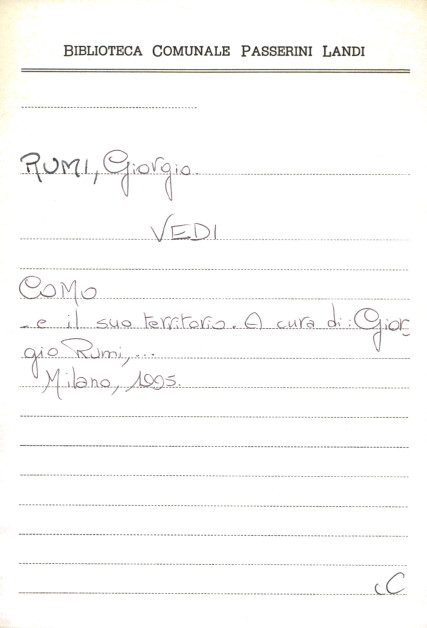 BIBLIOTECA COMUNALE PASSERINI LANDI
RUMI, Giorgio.
VEDI
COMO
- e il suo territorio. A cura di: Gior-
gio Rumi,...
Milano, 1995.
C